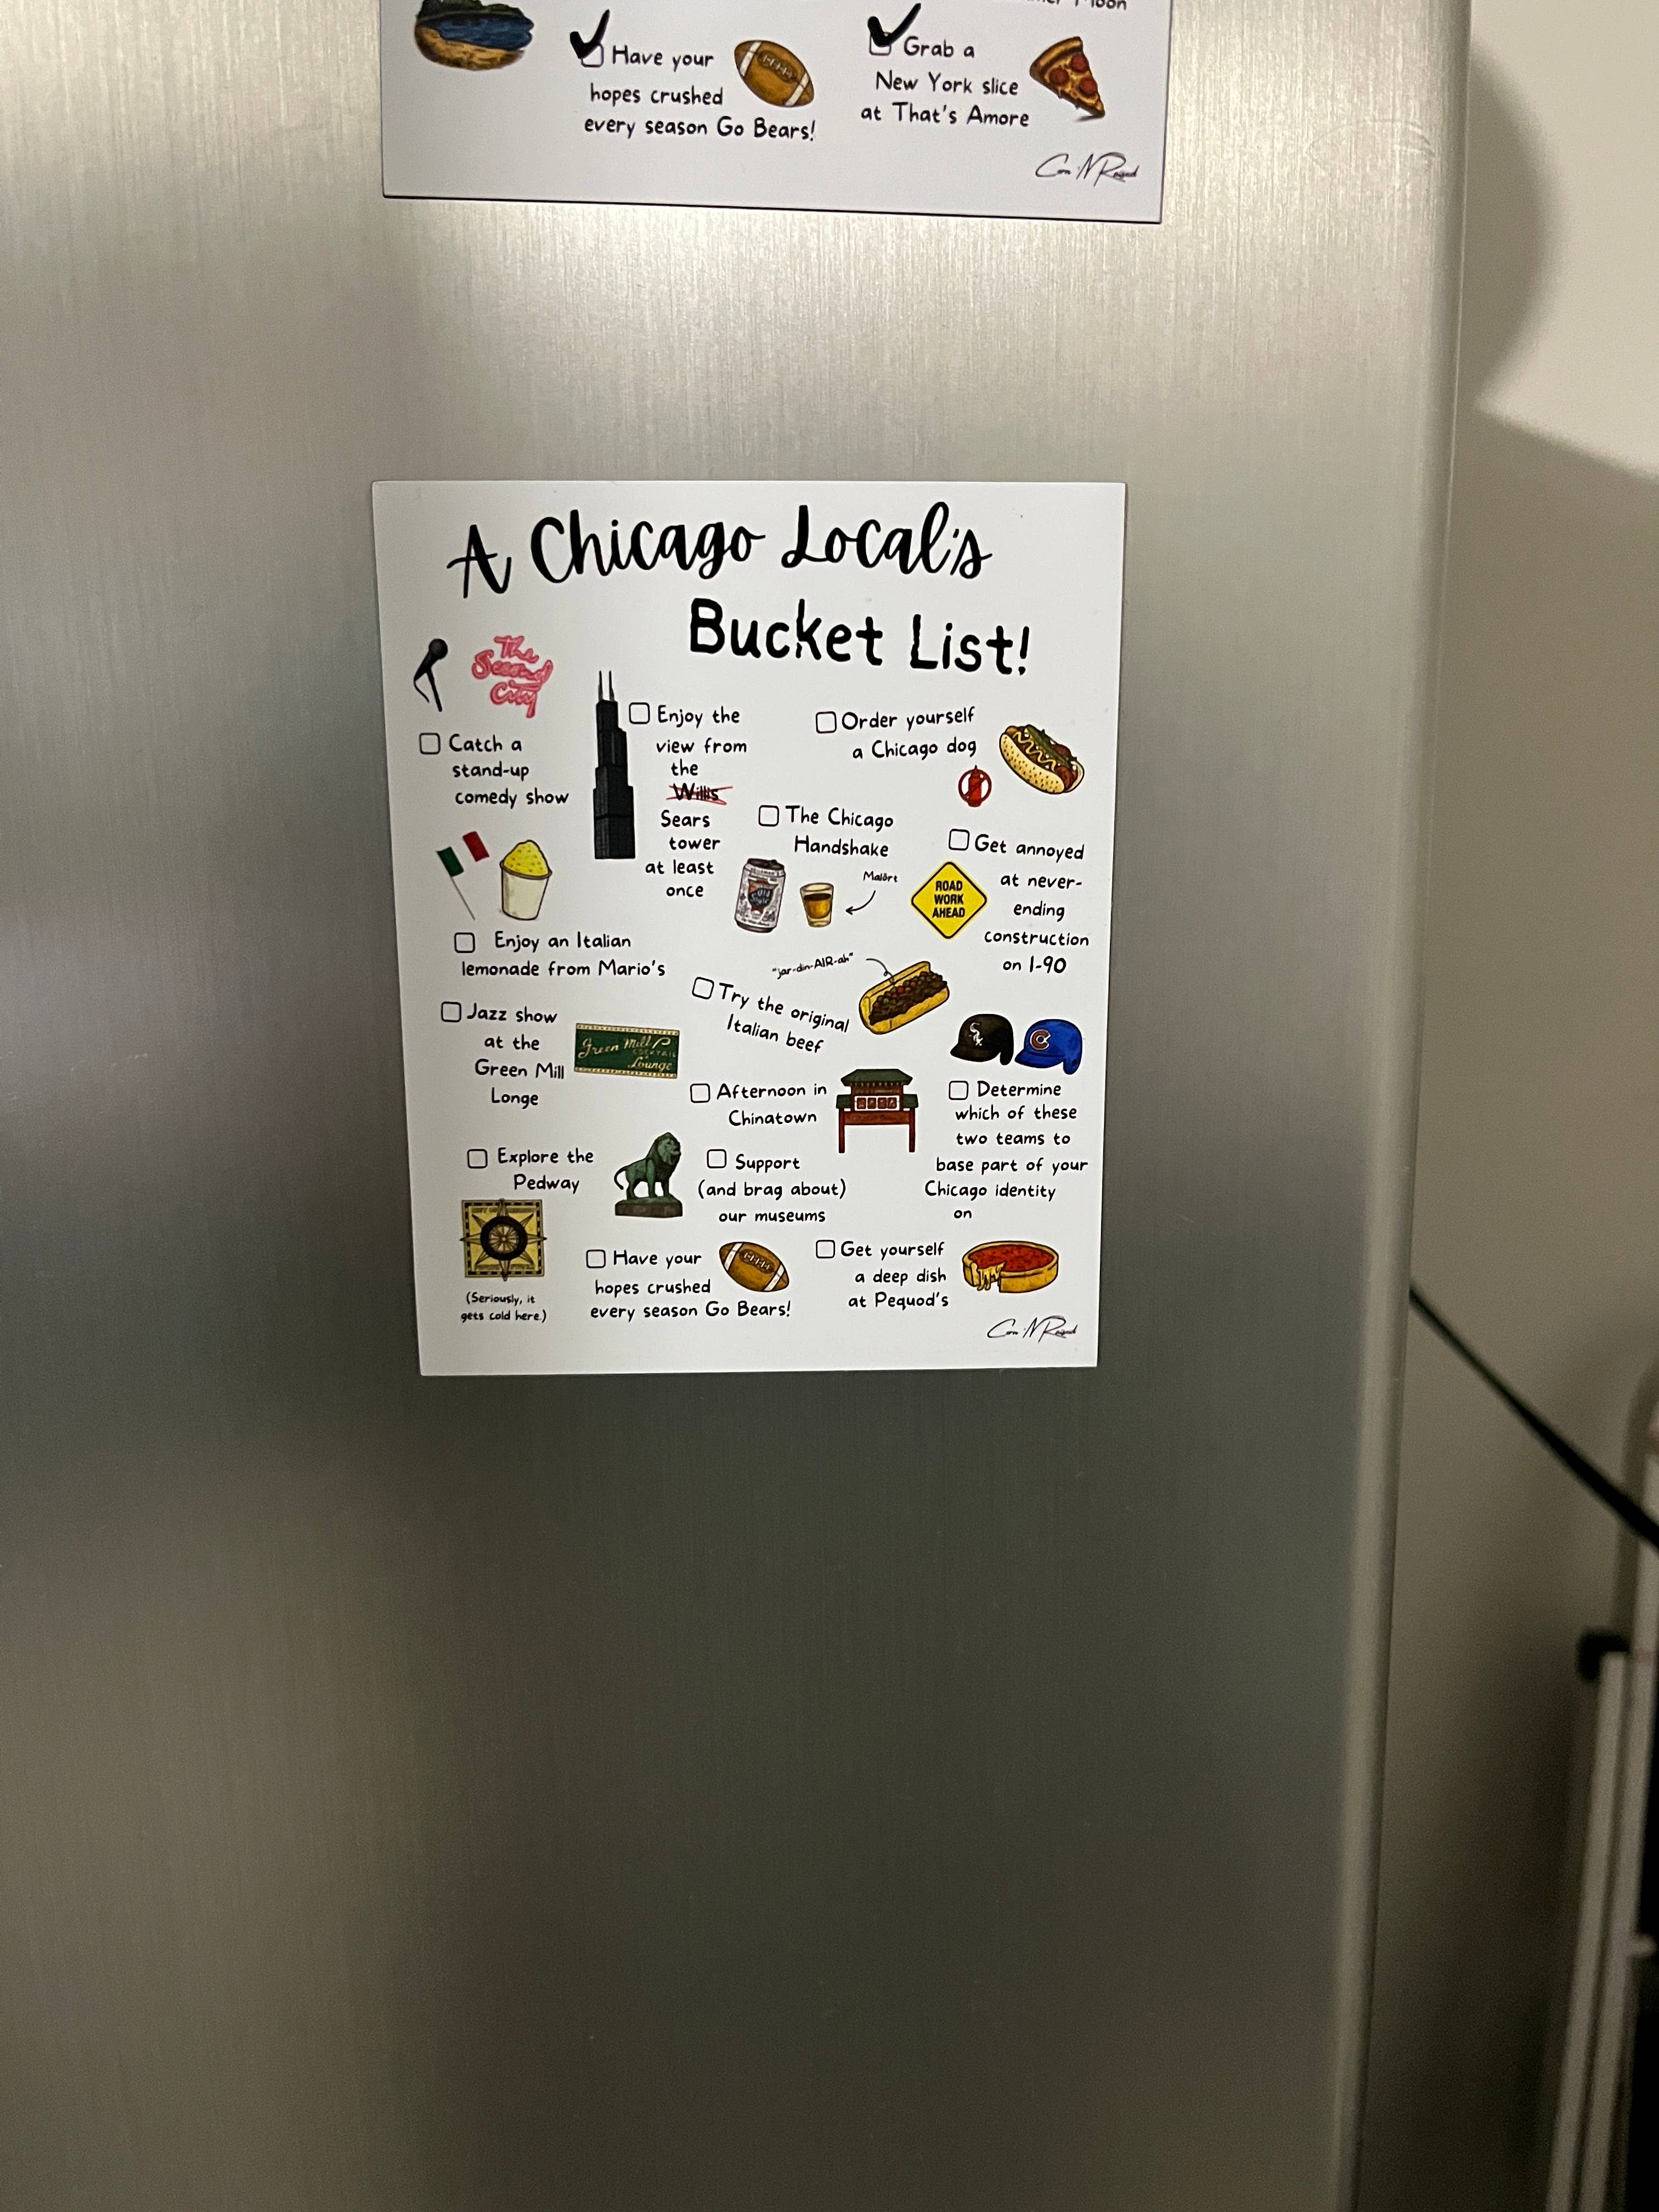 Moon
Have your
hopes crushed
every season Go Bears!
Grab a
New York slice
at That's Amore
A Chicago Local's
Bucket List!
The
Second
City
Catch a
stand-up
comedy show
Enjoy the
view from
the
Willis
Sears
tower
at least
once
Order yourself
a Chicago dog
The Chicago
Handshake
Malört
Old
Style
Get annoyed
at never-
ending
construction
on I-90
ROAD
WORK
AHEAD
Enjoy an Italian
lemonade from Mario's
"jar-din-AIR-ah"
Try the original
Italian beef
Jazz show
at the
Green Mill
Longe
Green Mill
COCKTAIL
Lounge
Afternoon in
Chinatown
C
Determine
which of these
two teams to
base part of your
Chicago identity
on
Explore the
Pedway
(Seriously, it
gets cold here.)
Support
(and brag about)
our museums
Have your
hopes crushed
every season Go Bears!
Get yourself
a deep dish
at Pequod's